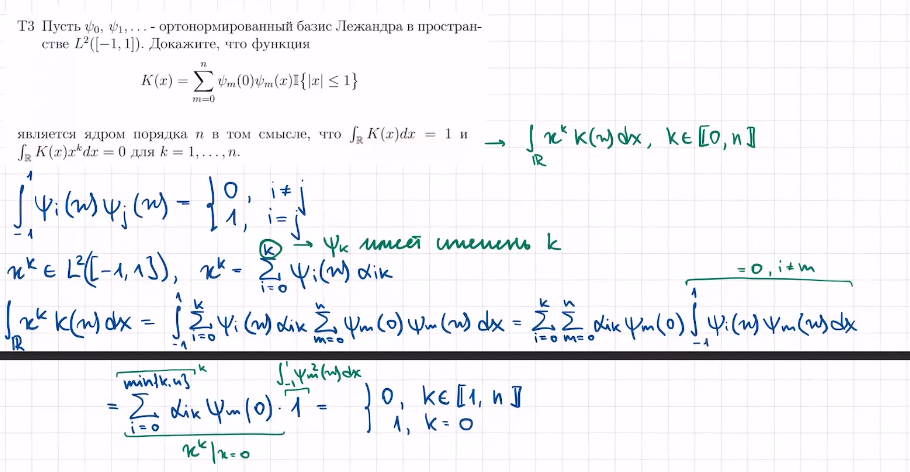 Т3 Пусть ψ₀, ψ₁, . . . - ортонормированный базис Лежандра в простран-
стве L²([−1, 1]). Докажите, что функция
K(x) = ∑_{m=0}^{n} ψₘ(0)ψₘ(x)𝕀{|x| ≤ 1}
является ядром порядка n в том смысле, что ∫_ℝ K(x)dx = 1 и
∫_ℝ K(x)xᵏdx = 0 для k = 1, . . . , n.
→ ∫_ℝ xᵏ K(x) dx, k ∈ ⟦0, n⟧
∫_{-1}^{1} ψᵢ(x) ψⱼ(x) = { 0, i ≠ j
1, i = j
(k) → ψₖ имеет степень k
xᵏ ∈ L²([-1, 1]), xᵏ = ∑_{i=0}^{k} ψᵢ(x) αᵢₖ
= 0, i ≠ m
∫_ℝ xᵏ K(x) dx = ∫_{-1}^{1} ∑_{i=0}^{k} ψᵢ(x) αᵢₖ ∑_{m=0}^{n} ψₘ(0) ψₘ(x) dx = ∑_{i=0}^{k} ∑_{m=0}^{n} αᵢₖ ψₘ(0) ∫_{-1}^{1} ψᵢ(x) ψₘ(x) dx
min{k, n} k ∫_{-1}^{1} ψₘ²(x) dx
= ∑_{i=0} αᵢₖ ψₘ(0) · 1 = { 0, k ∈ ⟦1, n⟧
1, k = 0
xᵏ|x=0